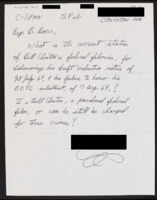 C-SPAN 12 Feb
Rep. B Barr,
What is the current status
of Bill Clinton's federal felonies, for
dishonoring his draft induction notice of
3rd July 69, & his failure to honor his
ROTC enlistment, of 7 Aug. 69?
If a Bill Clinton, a pardoned federal
felon, or can still be charged
for those crimes?